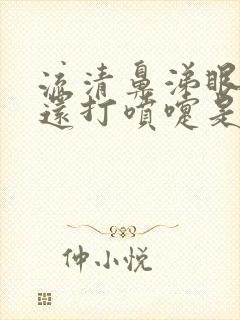 流清鼻涕眼
還打噴嚏是
仲小悦